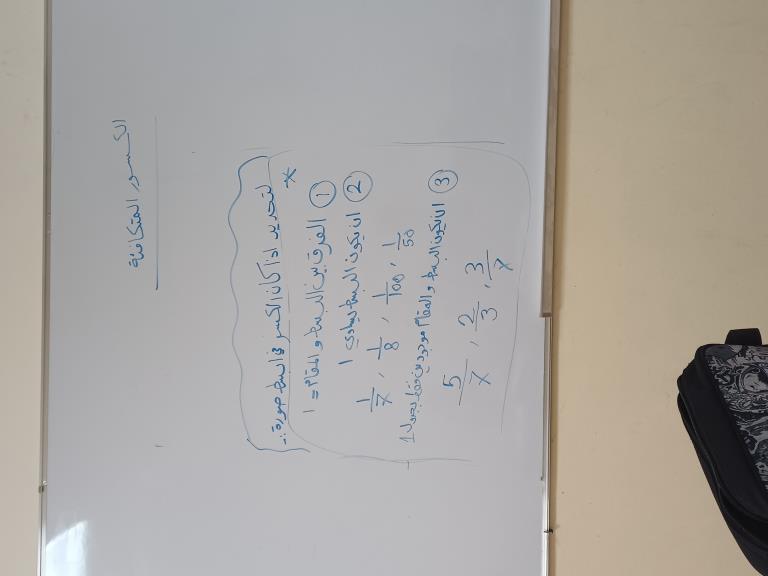 الكسور المتكافئة
* لتحديد اذا كان الكسر في ابسط صورة :-
① الفرق بين البسط و المقام = 1
② ان يكون البسط يساوي 1
1/7 , 1/8 , 1/100 , 1/50
③ ان يكون البسط و المقام موجودين فقط بجدول 1
5/7 , 2/3 , 3/7